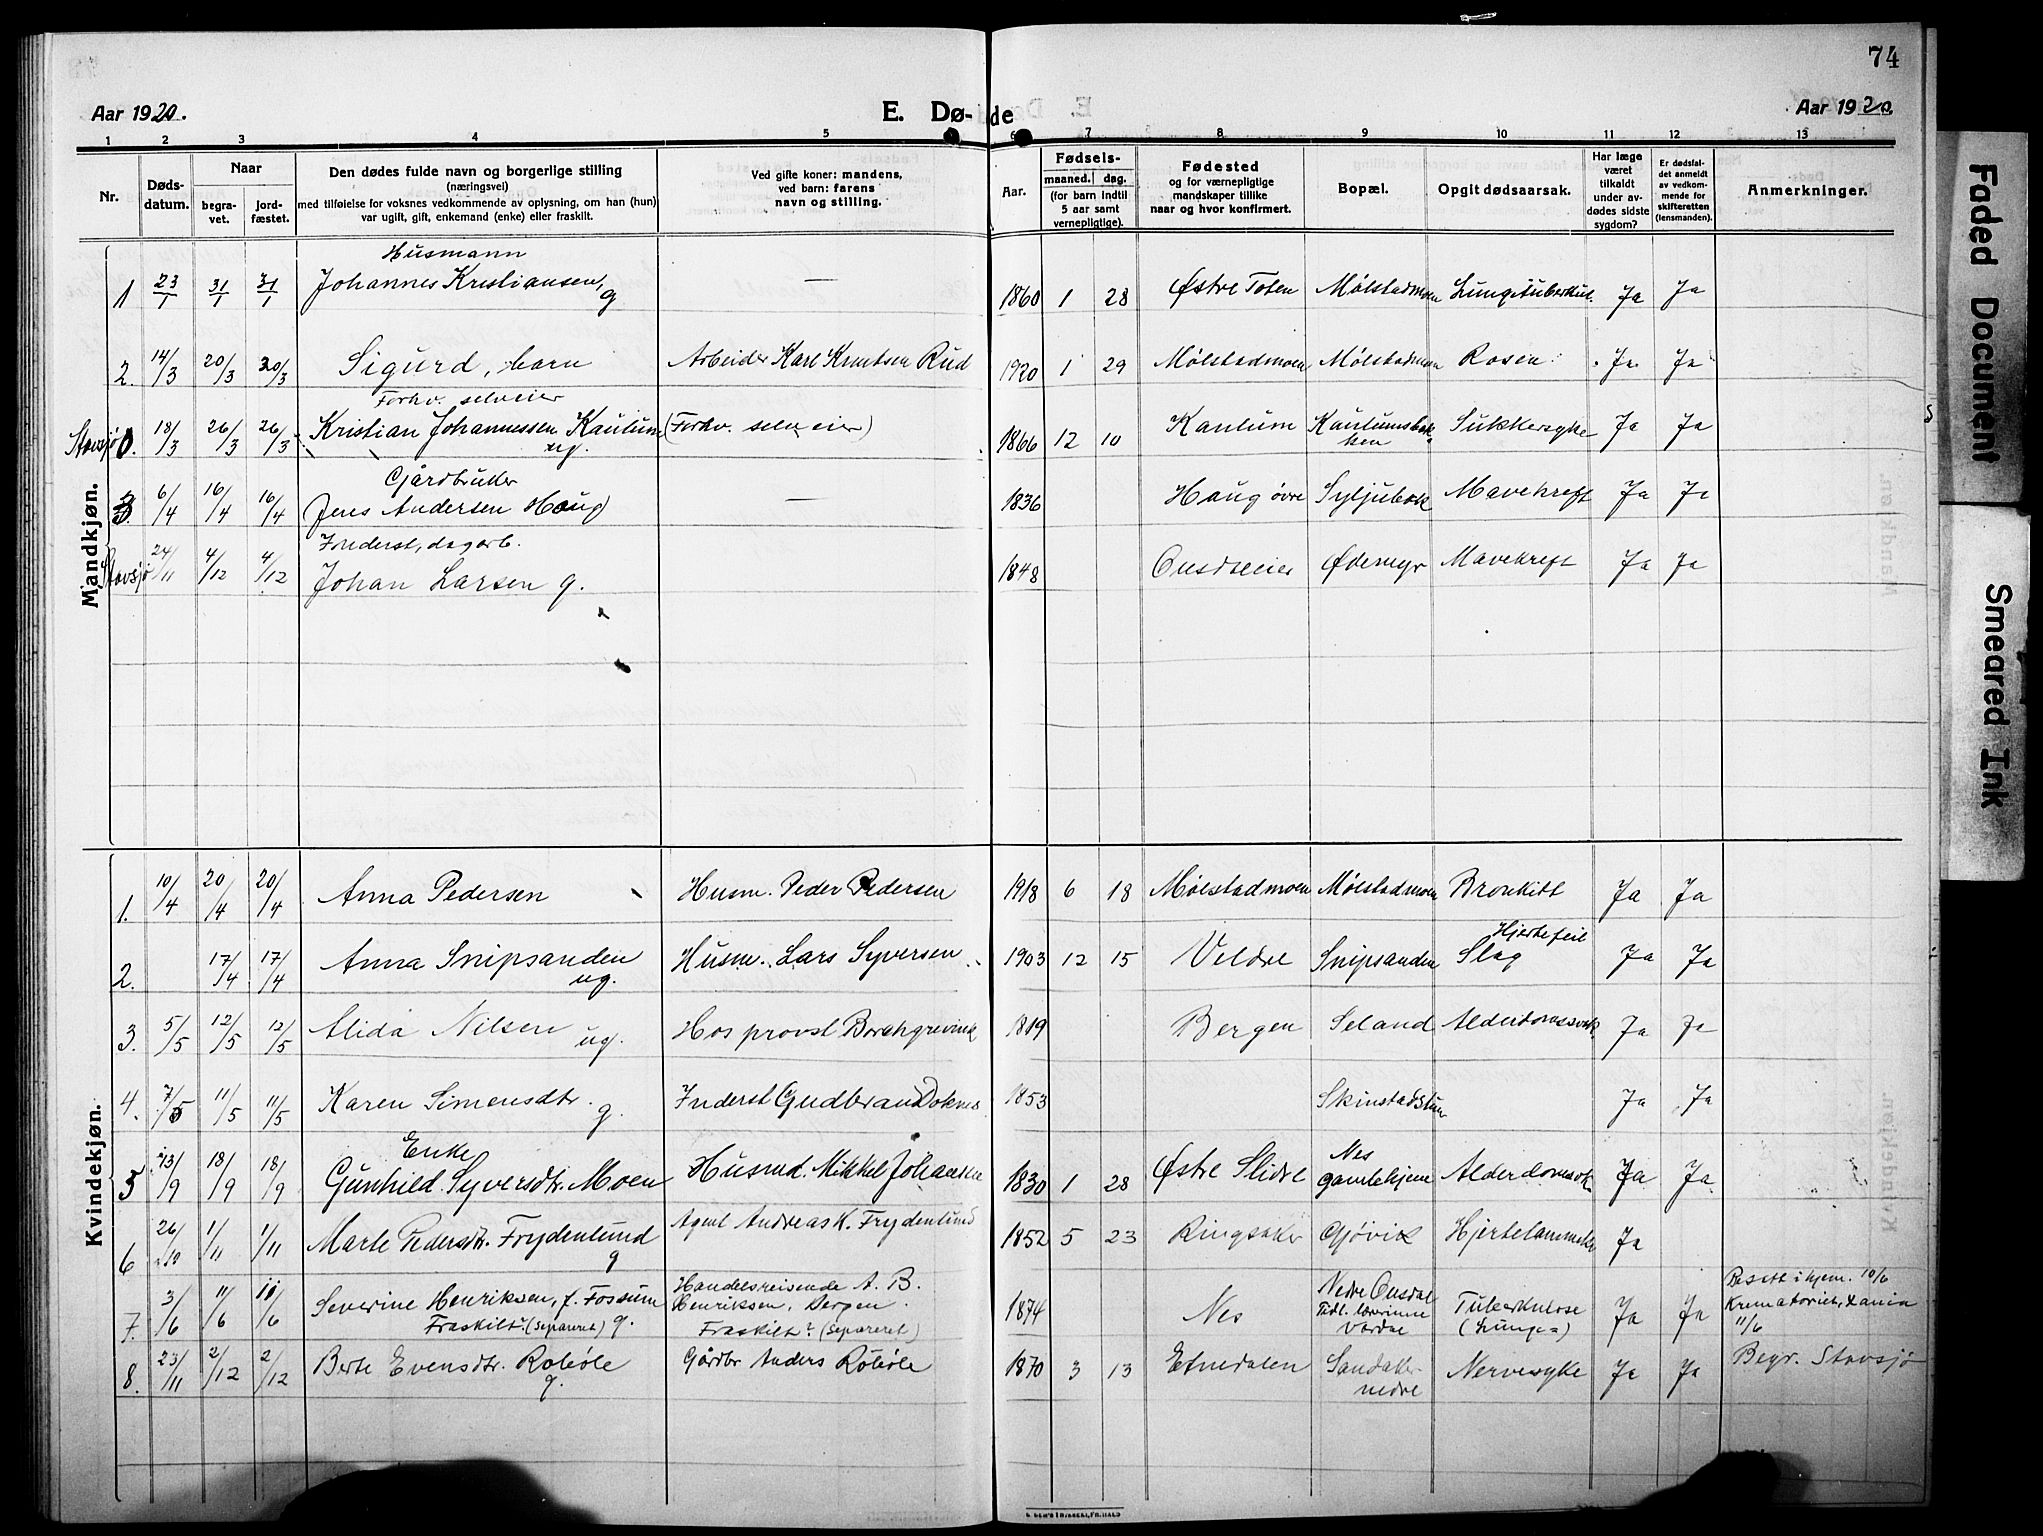 74
Aar 1920.
E. Dø-
de
Aar 1920
1 2 3 4 5 6 7 8 9 10 11 12 13
Nr.
Døds-
datum.
Naar
begra-
vet.
jord-
fæstet.
Den dødes fulde navn og borgerlige stilling
(næringsvei)
med tilføielse for voksnes vedkommende av oplysning, om han (hun)
var ugift, gift, enkemand (enke) eller fraskilt.
Ved gifte koner: mandens,
ved barn: farens
navn og stilling.
Aar.
Fødsels-
maaned. dag.
(for barn indtil
5 aar samt
vernepligtige).
Fødested
og for værnepligtige
mandskaper tillike
naar og hvor konfirmert.
Bopæl.
Opgit dødsaarsak.
Har læge
været
tilkaldt
under av-
dødes sidste
sygdom?
Er dødsfal-
det anmeldt
av vedkom-
mende for
skifteretten
(lensmanden).
Anmerkninger.
Mandkjøn.
Husmann
1 23/1 31/1 31/1 Johannes Kristiansen, g — 1860 1 28 Østre Toten Mølstadmoen Lungetuberkul. Ja Ja
2. 14/3 20/3 20/3 Sigurd, barn Arbeider Karl Knutsen Rud 1920 1 29 Mølstadmoen Mølstadmoen Rosen Ja Ja
Forhv. selveier
Stavsjø 0. 18/3 26/3 26/3 Kristian Johannessen Kaulum ug. (Forhv. selveier) 1866 12 10 Kaulum Kaulumsbak-
ken Sukkersyke Ja Ja
Gjårdbruker
3. 6/4 16/4 16/4 Jens Andersen Haug — 1836 Haug øvre Syljubak Mavekreft Ja Ja
Inderst, dagarb.
Stavsjø 24/11 4/12 4/12 Johan Larsen g. 1848 Onsdseier Ødemyr Mavekreft Ja Ja
Kvindekjøn.
1. 10/4 20/4 20/4 Anna Pedersen Husm. Peder Pedersen 1918 6 18 Mølstadmoen Mølstadmoen Bronkitt Ja Ja
Hjertefeil
2. 17/4 17/4 Anna Snipsanden ug. Husm. Lars Syversen 1903 12 15 Veldre Snipsanden Slag Ja Ja
3. 5/5 12/5 12/5 Alida Nilsen ug. Hos provst Borchgrevink 1819 Bergen Seland Alderdomssvak. Ja Ja
4. 7/5 11/5 11/5 Karen Simensdtr. g. Inderst Gudbrand 1853 Skinstadstuen Ja Ja
Enke
5 13/9 18/9 18/9 Gunhild Syversdtr. Moen Husmd. Mikkel Johansen 1830 1 28 Østre Slidre Nes
gamlehjem Alderdomsvk. Ja Ja
6 26/10 1/11 1/11 Marte Pedersdtr. Frydenlund g Agent Andreas K. Frydenlund 1852 5 23 Ringsaker Gjøvik Hjertelammelse Ja
7. 3/6 11/6 11/6 Severine Henriksen, f. Fossum
Fraskilt (separeret) g. Handelsreisende A. B.
Henriksen, Bergen.
Fraskilt (separeret) 1874 Nes Nedre Onsdal
Tidl. lærerinne
Vardal Tuberkulose
(Lunge=) Ja Ja Besett i hjem. 10/6
Krematoriet, Xania
11/6
8. 23/11 2/12 2/12 Berte Evensdtr. Roliøle g. Gårdbr Anders Roliøle 1870 3 13 Etnedalen Sandaker
nedre Nervesyke Ja Ja Begr. Stavsjø
Faded Document
Smeared Ink